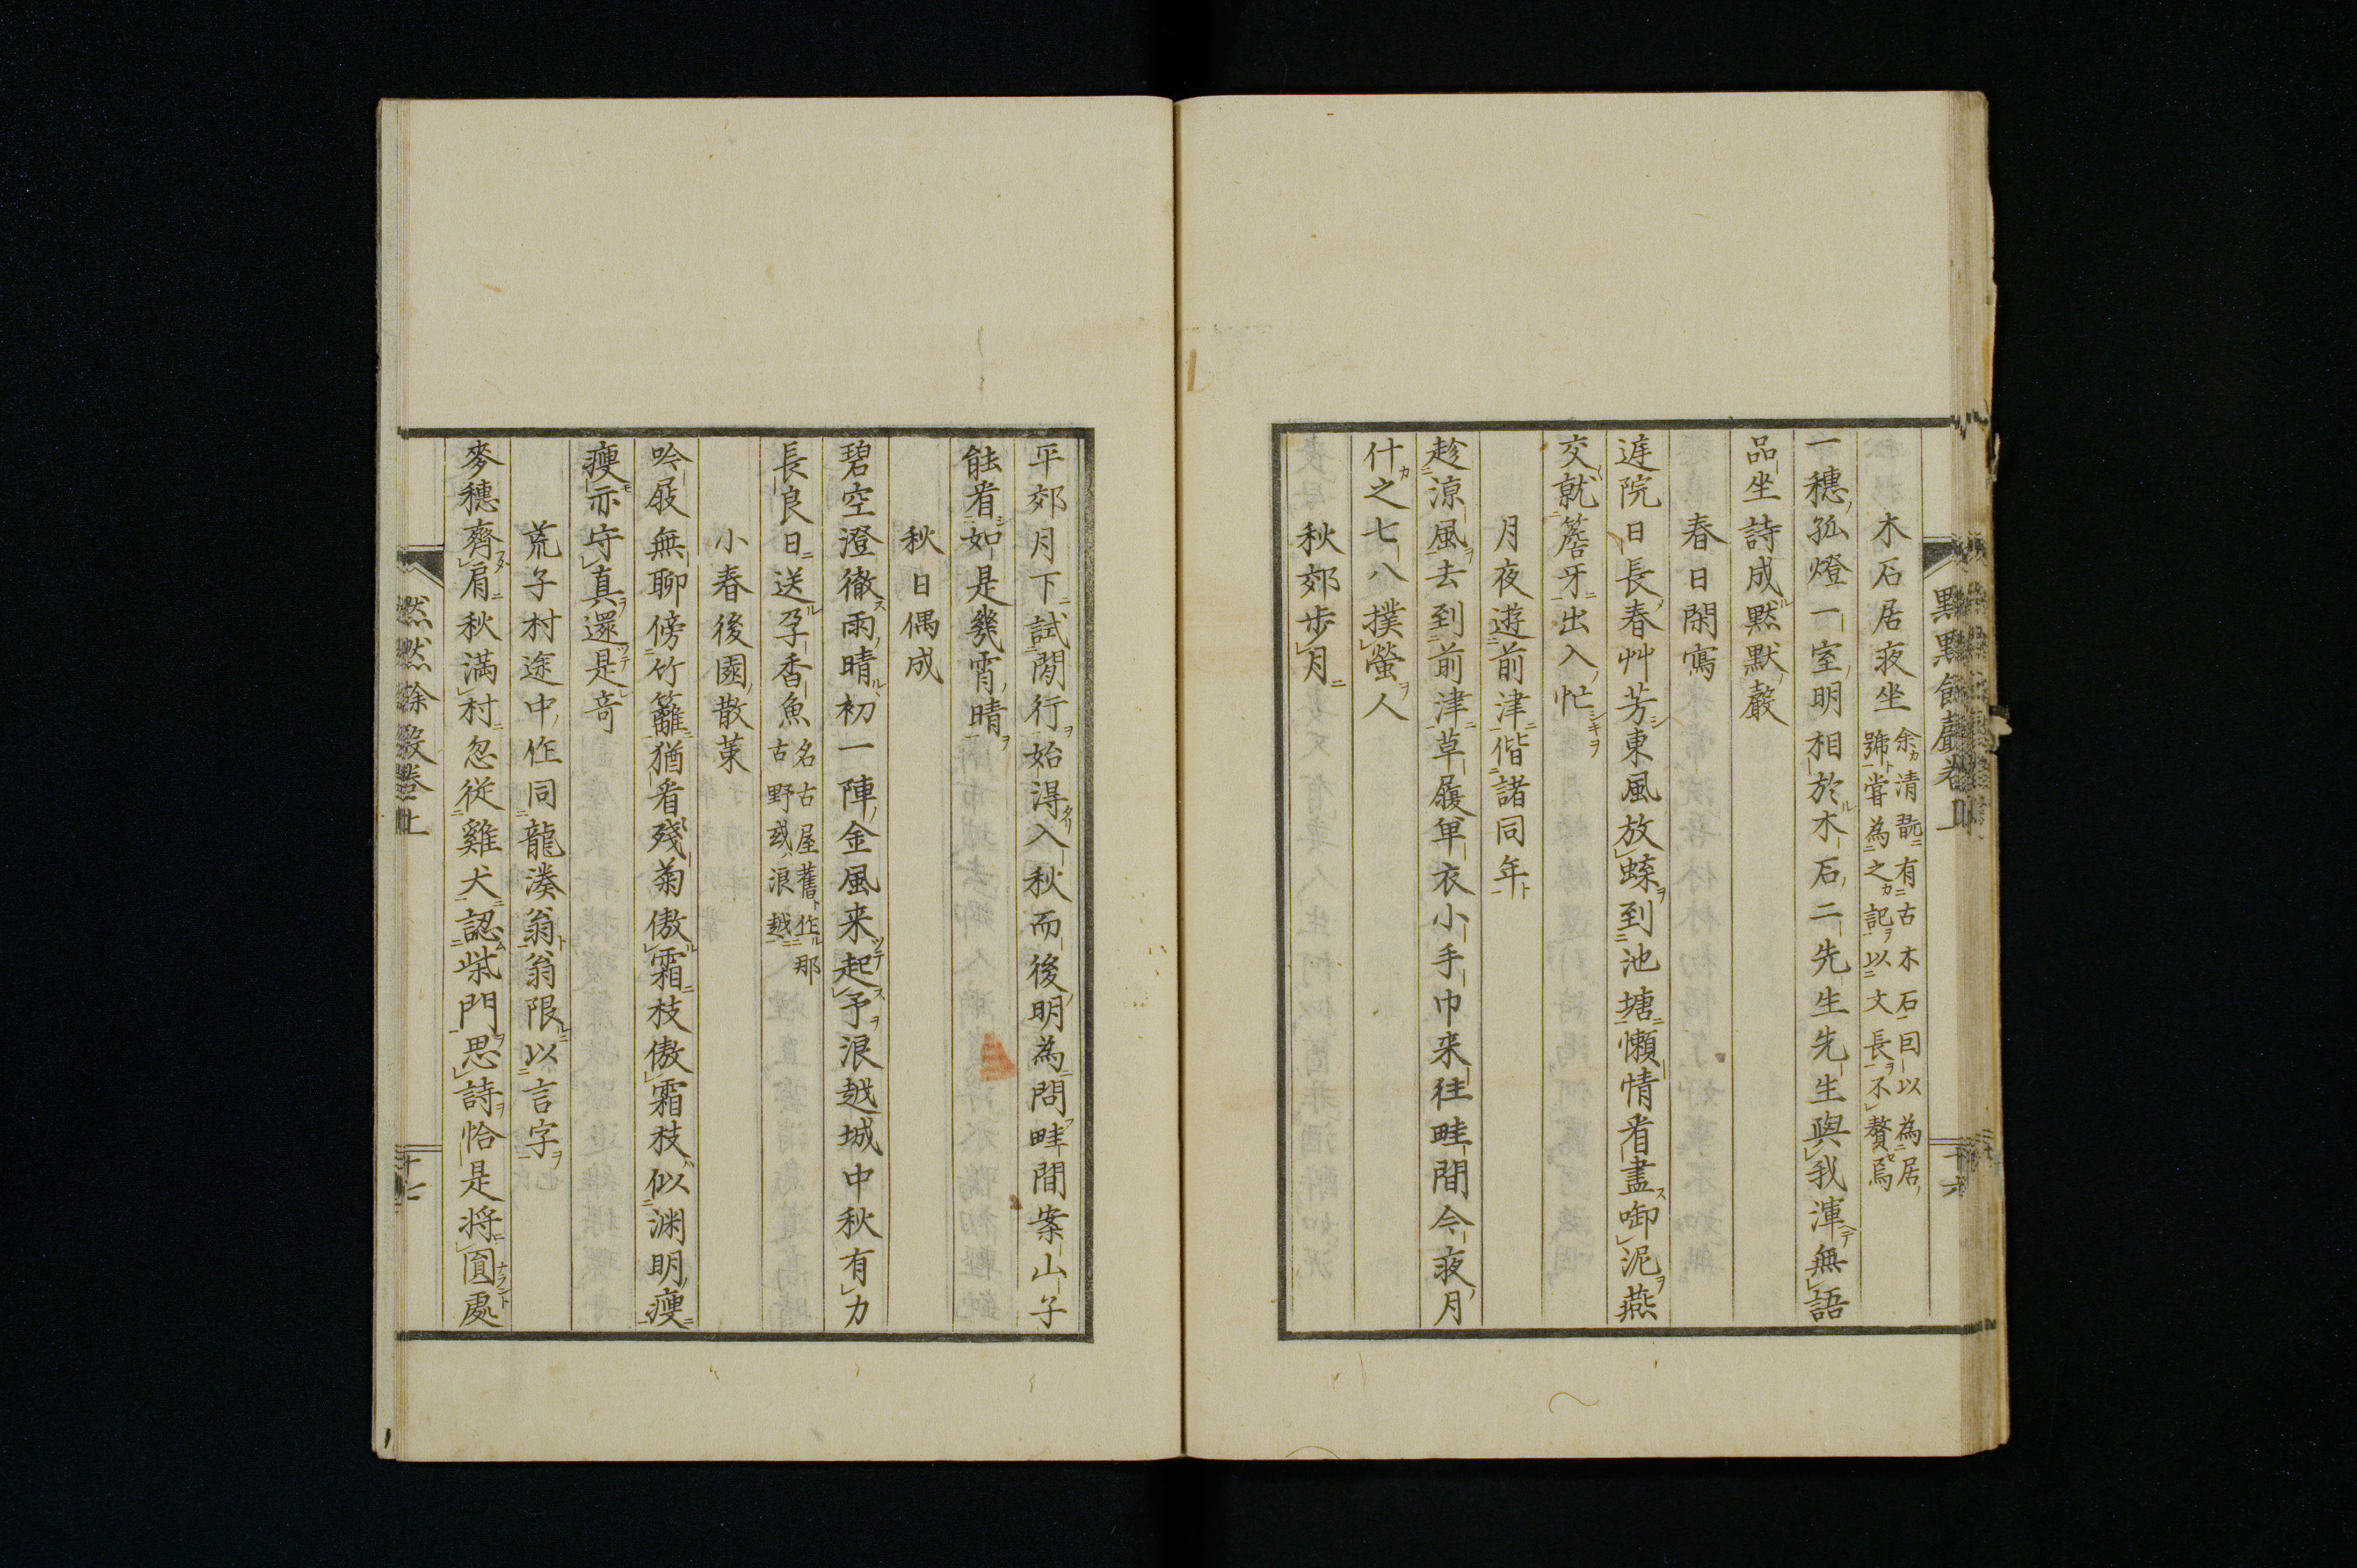 木石居夜坐 余カ清翫ニ有古木石曰以為居
號ト嘗為之カ記ヲ以文長ヲ不贅焉
一穗孤燈一室明相於木石二先生先生與我渾無語
品坐詩成黙黙聲
春日閑寫
遅院日長春艸芳東風放蝶到池塘懶情看盡啣泥燕
交就簷牙出入忙
月夜遊前津偕諸同年
趁涼風去到前津草履単衣小手巾来往畦間今夜月
什之七八撲螢人
秋郊歩月
平郊月下試閒行始得入秋而後明為問畦間案山子
能看如是幾宵晴
秋日偶成
碧空澄徹雨晴初一陣金風来起予浪越城中秋有力
長良日送孕香魚 名古屋舊作那
古野或浪越
小春後園散策
吟屐無聊傍竹籬猶看殘菊傲霜枝傲霜枝似渊明痩
痩亦守真還是竒
荒子村途中作同龍湊翁翁限以言字
麥穗齊肩秋満村忽従雞犬認柴門思詩恰是将圓處
十七